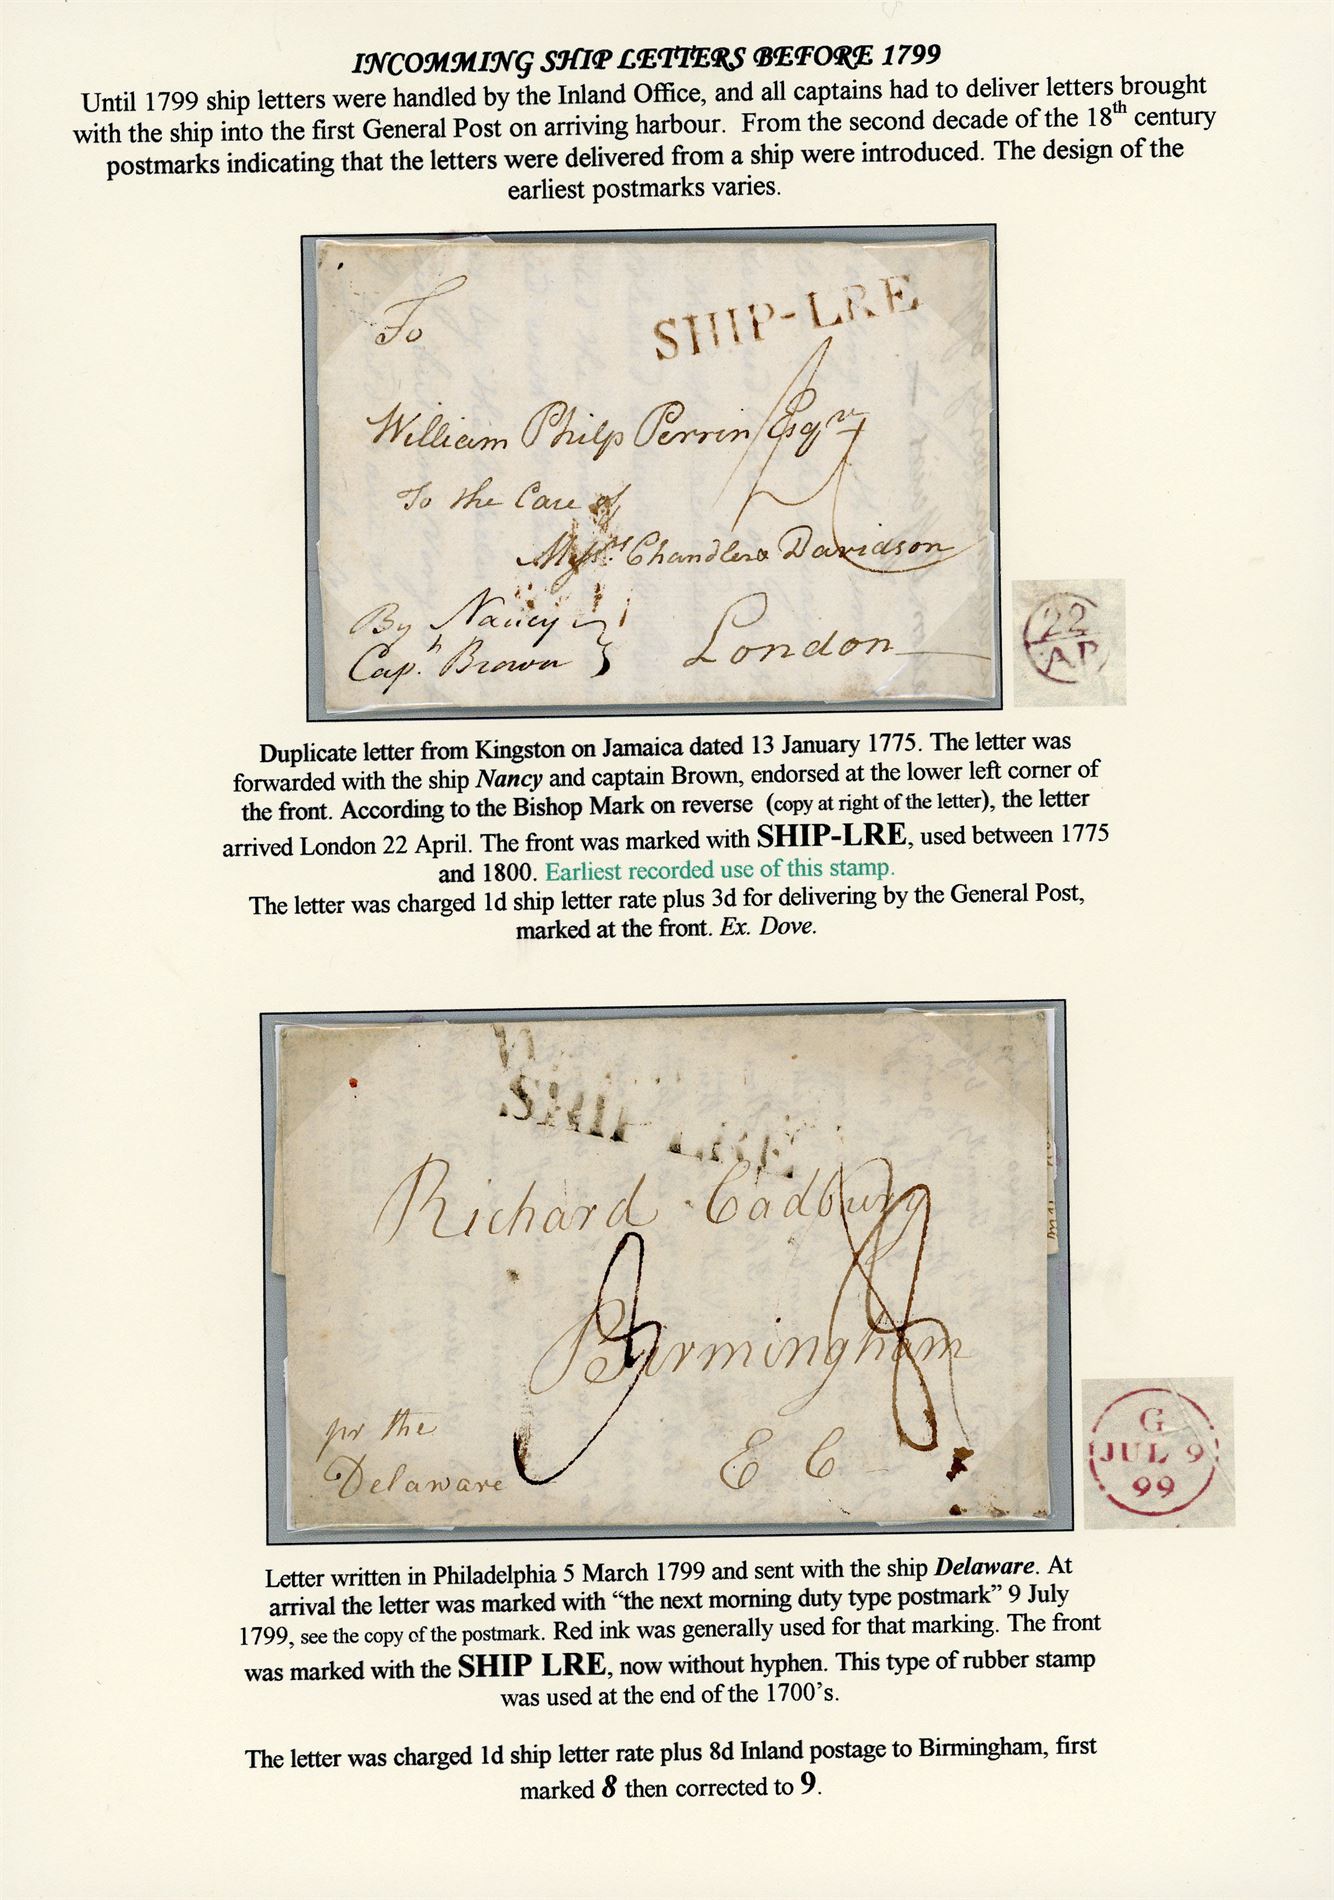 INCOMMING SHIP LETTERS BEFORE 1799
Until 1799 ship letters were handled by the Inland Office, and all captains had to deliver letters brought
with the ship into the first General Post on arriving harbour. From the second decade of the 18th century
postmarks indicating that the letters were delivered from a ship were introduced. The design of the
earliest postmarks varies.
SHIP-LRE
To
William Philp Perrin Esqre
To the Care of
Messrs Chandler & Davidson
By Nancy
London
Capn Brown
22
AP
Duplicate letter from Kingston on Jamaica dated 13 January 1775. The letter was
forwarded with the ship Nancy and captain Brown, endorsed at the lower left corner of
the front. According to the Bishop Mark on reverse (copy at right of the letter), the letter
arrived London 22 April. The front was marked with SHIP-LRE, used between 1775
and 1800. Earliest recorded use of this stamp.
The letter was charged 1d ship letter rate plus 3d for delivering by the General Post,
marked at the front. Ex. Dove.
SHIP LRE
Richard Cadbury
9 8
Birmingham
pr the
Delaware
E C
G
JUL 9
99
Letter written in Philadelphia 5 March 1799 and sent with the ship Delaware. At
arrival the letter was marked with “the next morning duty type postmark” 9 July
1799, see the copy of the postmark. Red ink was generally used for that marking. The front
was marked with the SHIP LRE, now without hyphen. This type of rubber stamp
was used at the end of the 1700’s.
The letter was charged 1d ship letter rate plus 8d Inland postage to Birmingham, first
marked 8 then corrected to 9.